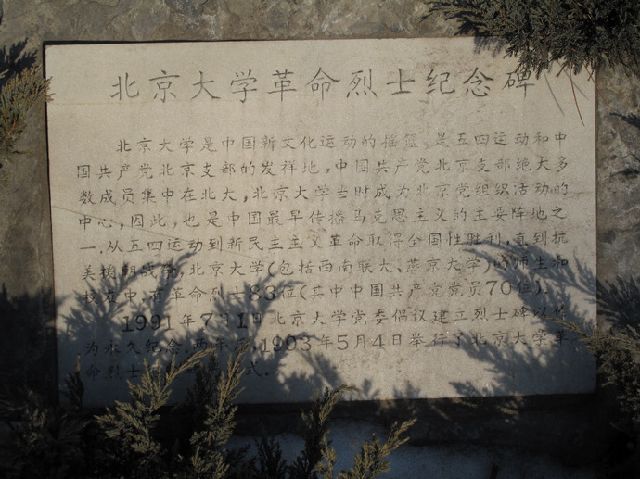 北京大学革命烈士纪念碑
北京大学是中国新文化运动的摇篮,是五四运动和中
国共产党北京支部的发祥地,中国共产党北京支部绝大多
数成员集中在北大,北京大学当时成为北京党组织活动的
中心,因此,也是中国最早传播马克思主义的主要阵地之
一.从五四运动到新民主主义革命取得全国性胜利,直到抗
美援朝战争,北京大学(包括西南联大、燕京大学)的师生和
校友中,有革命烈士83位(其中中国共产党党员70位).
1991年7月1日北京大学党委倡议建立烈士碑以作
为永久纪念.两年后,1993年5月4日举行了北京大学革
命烈士 式.